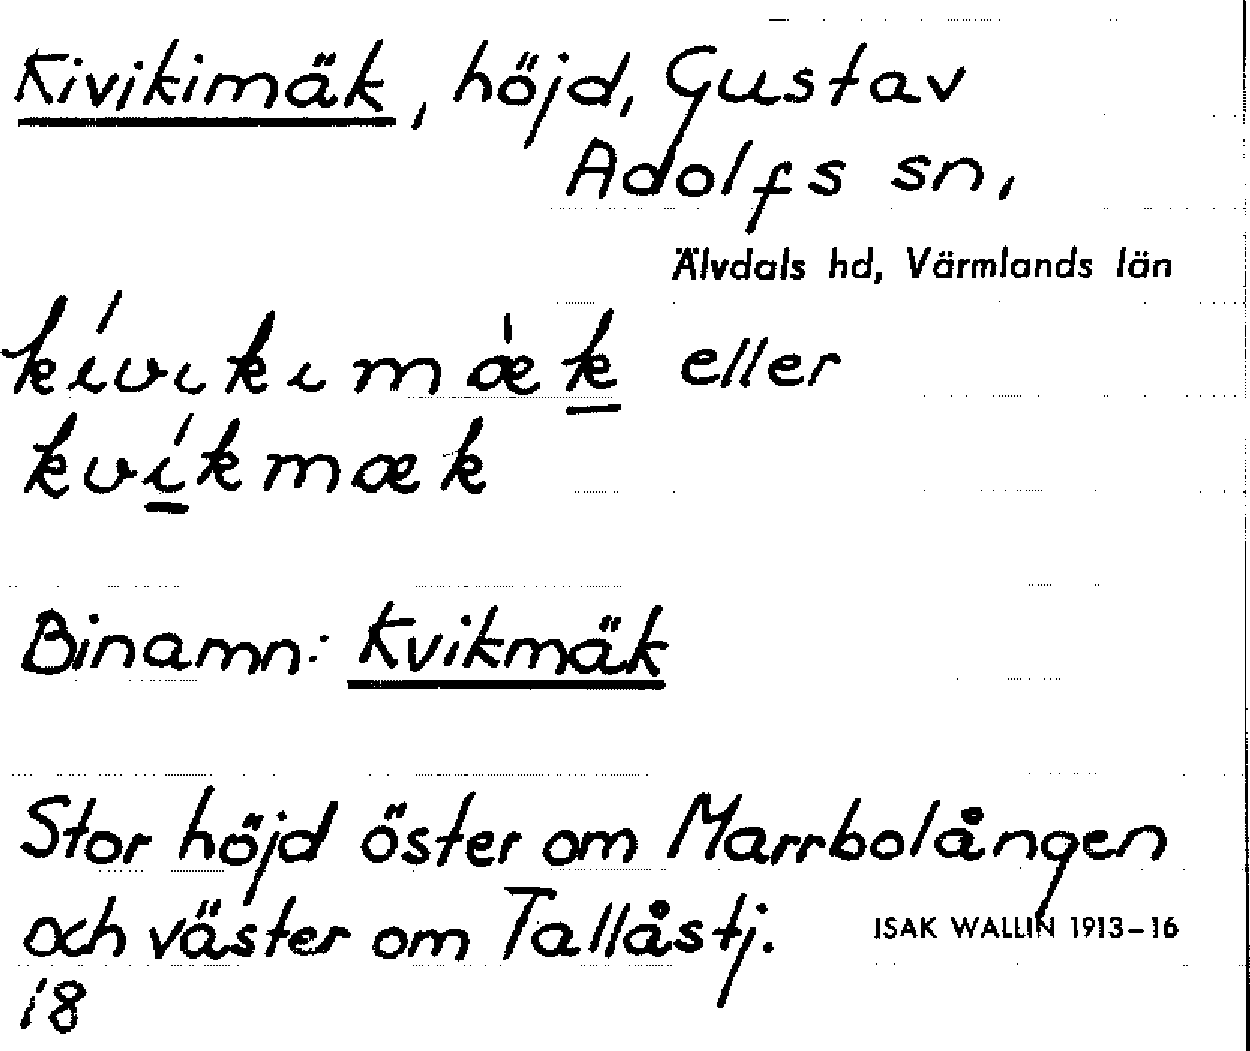 Kivikimäk, höjd, Gustav
Adolfs sn,
Älvdals hd, Värmlands län
kívıkımæ̀k eller
kvíkmæk
Binamn: Kvikmäk
Stor höjd öster om Marrbolången
och väster om Tallåstj.
ISAK WALLIN 1913-16
18